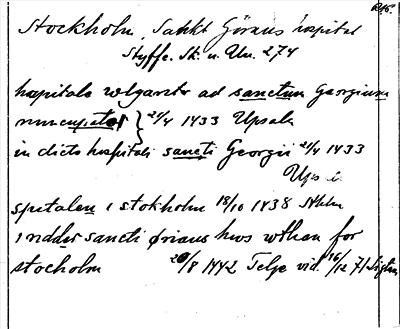 Stockholm, Sankt Görans hospital
Styffe. Sk. u. Un. 274
hospitale wlgariter ad sanctum Georgium
nuncupatos } 21/4 1433 Upsala
in dicto hospitali sancti Georgii 21/4 1433
Ups
spetalen i stokholm 18/10 1438 Sthlm
i nddæs sancti örians hws wthan for
stocholm 20/8 1442 Telge vid. 16/12 71